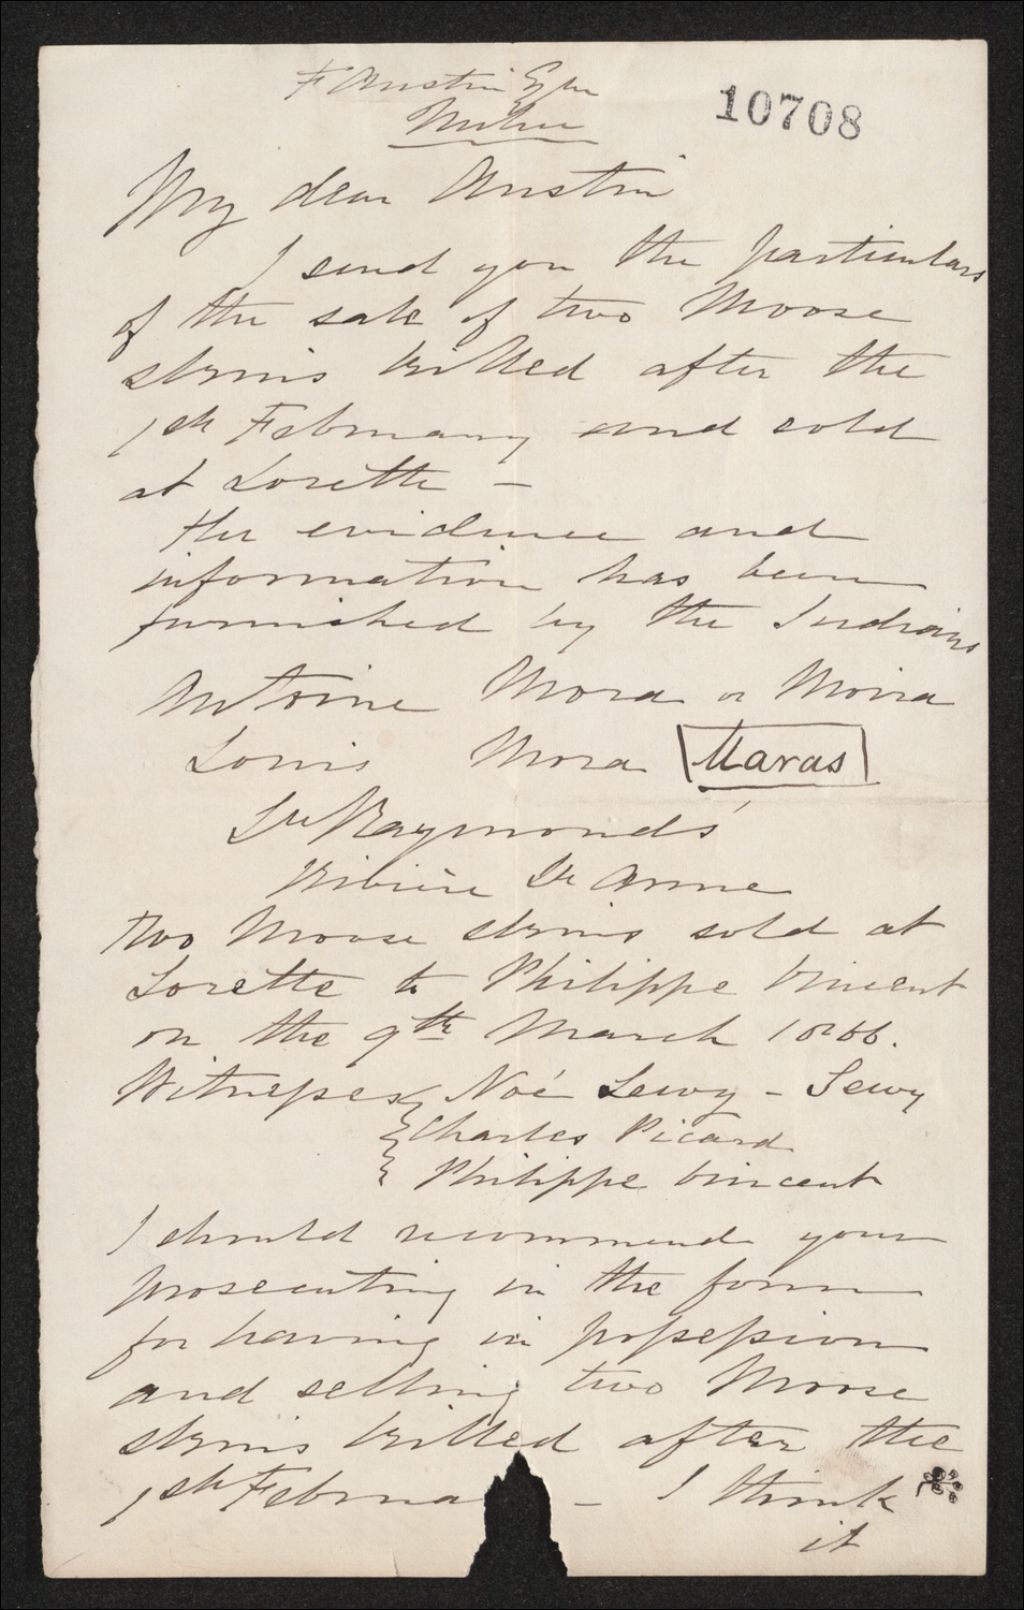 F Austin Esqr
10708
My dear Austin
I send you the particulars
of the sale of two Moose
skins killed after the
1st February and sold
at Lorette –
the evidence and
information has been
furnished by the Indians
Antoine Mora or Moira
Louis Mora Maras
St Raymonds
Riviere St Anne
two Moose skins sold at
Lorette to Philippe Vincent
on the 9th March 1866.
Witnesses Noé Sewy – Sewy
Charles Picard
Philippe Vincent
I should recommend your
prosecuting in the form
for having in possession
and selling two Moose
skins killed after the
1st Februa – I think
it